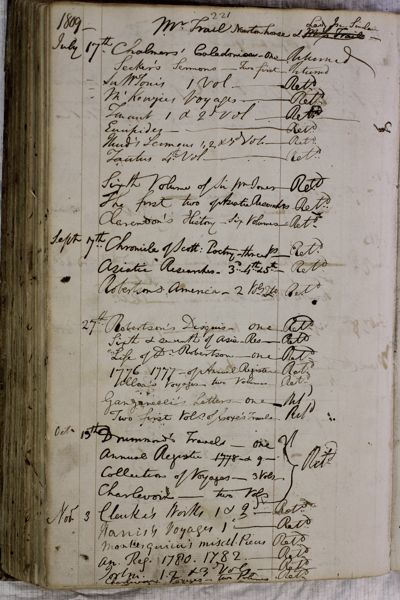 221
1809
Mr Trail Hall &
July 17th Chalmers' Caledonia - one Returned
Secker's Sermons - Two first Returned
Sir Wm Jones 1 Vol - Retd
McKenzies Voyages - Retd
1 & 2d Vol - Retd
Euripides - Retd
Sermons 1, 2, & 3d Vols Retd
Tacitus 4 Vol - Retd
Sixth Volume of Sir Wm Jones Retd
The first two of Asiatic Researches Retd
Clarendon's History - Six Volumes - Retd
Septr 17th Chronicle of Scott: Poetry - three Vs Retd
Asiatic Researches - 3d 4th & 5th Retd
Robertson's America - 2 Vols Retd
27th Robertson's Disquis: - one Retd
Sixth & seventh of Asia: Res - Retd
Life of Dr Robertson - one Retd
1776 1777 - of Annual Register Retd
Voyages - two Volumes Retd
Ganganelli's Letters - one - Ret
Two first Vols of Coxe's Travels Retd
Octr 13th Drummond's Travels - one
Annual Register 1778 & 9 -
Collection of Voyages - 3 Vols Retd
Charlevoix - two Vols
Novr 3 Clarke's Works 1 & 2d Retd
Harris's Voyages 1 - Retd
Montesquieu's miscell. Pieces Retd
An. Reg. 1780. 1782 - Retd
1. 2 & 3d Vols Retd
two Volumes Retd